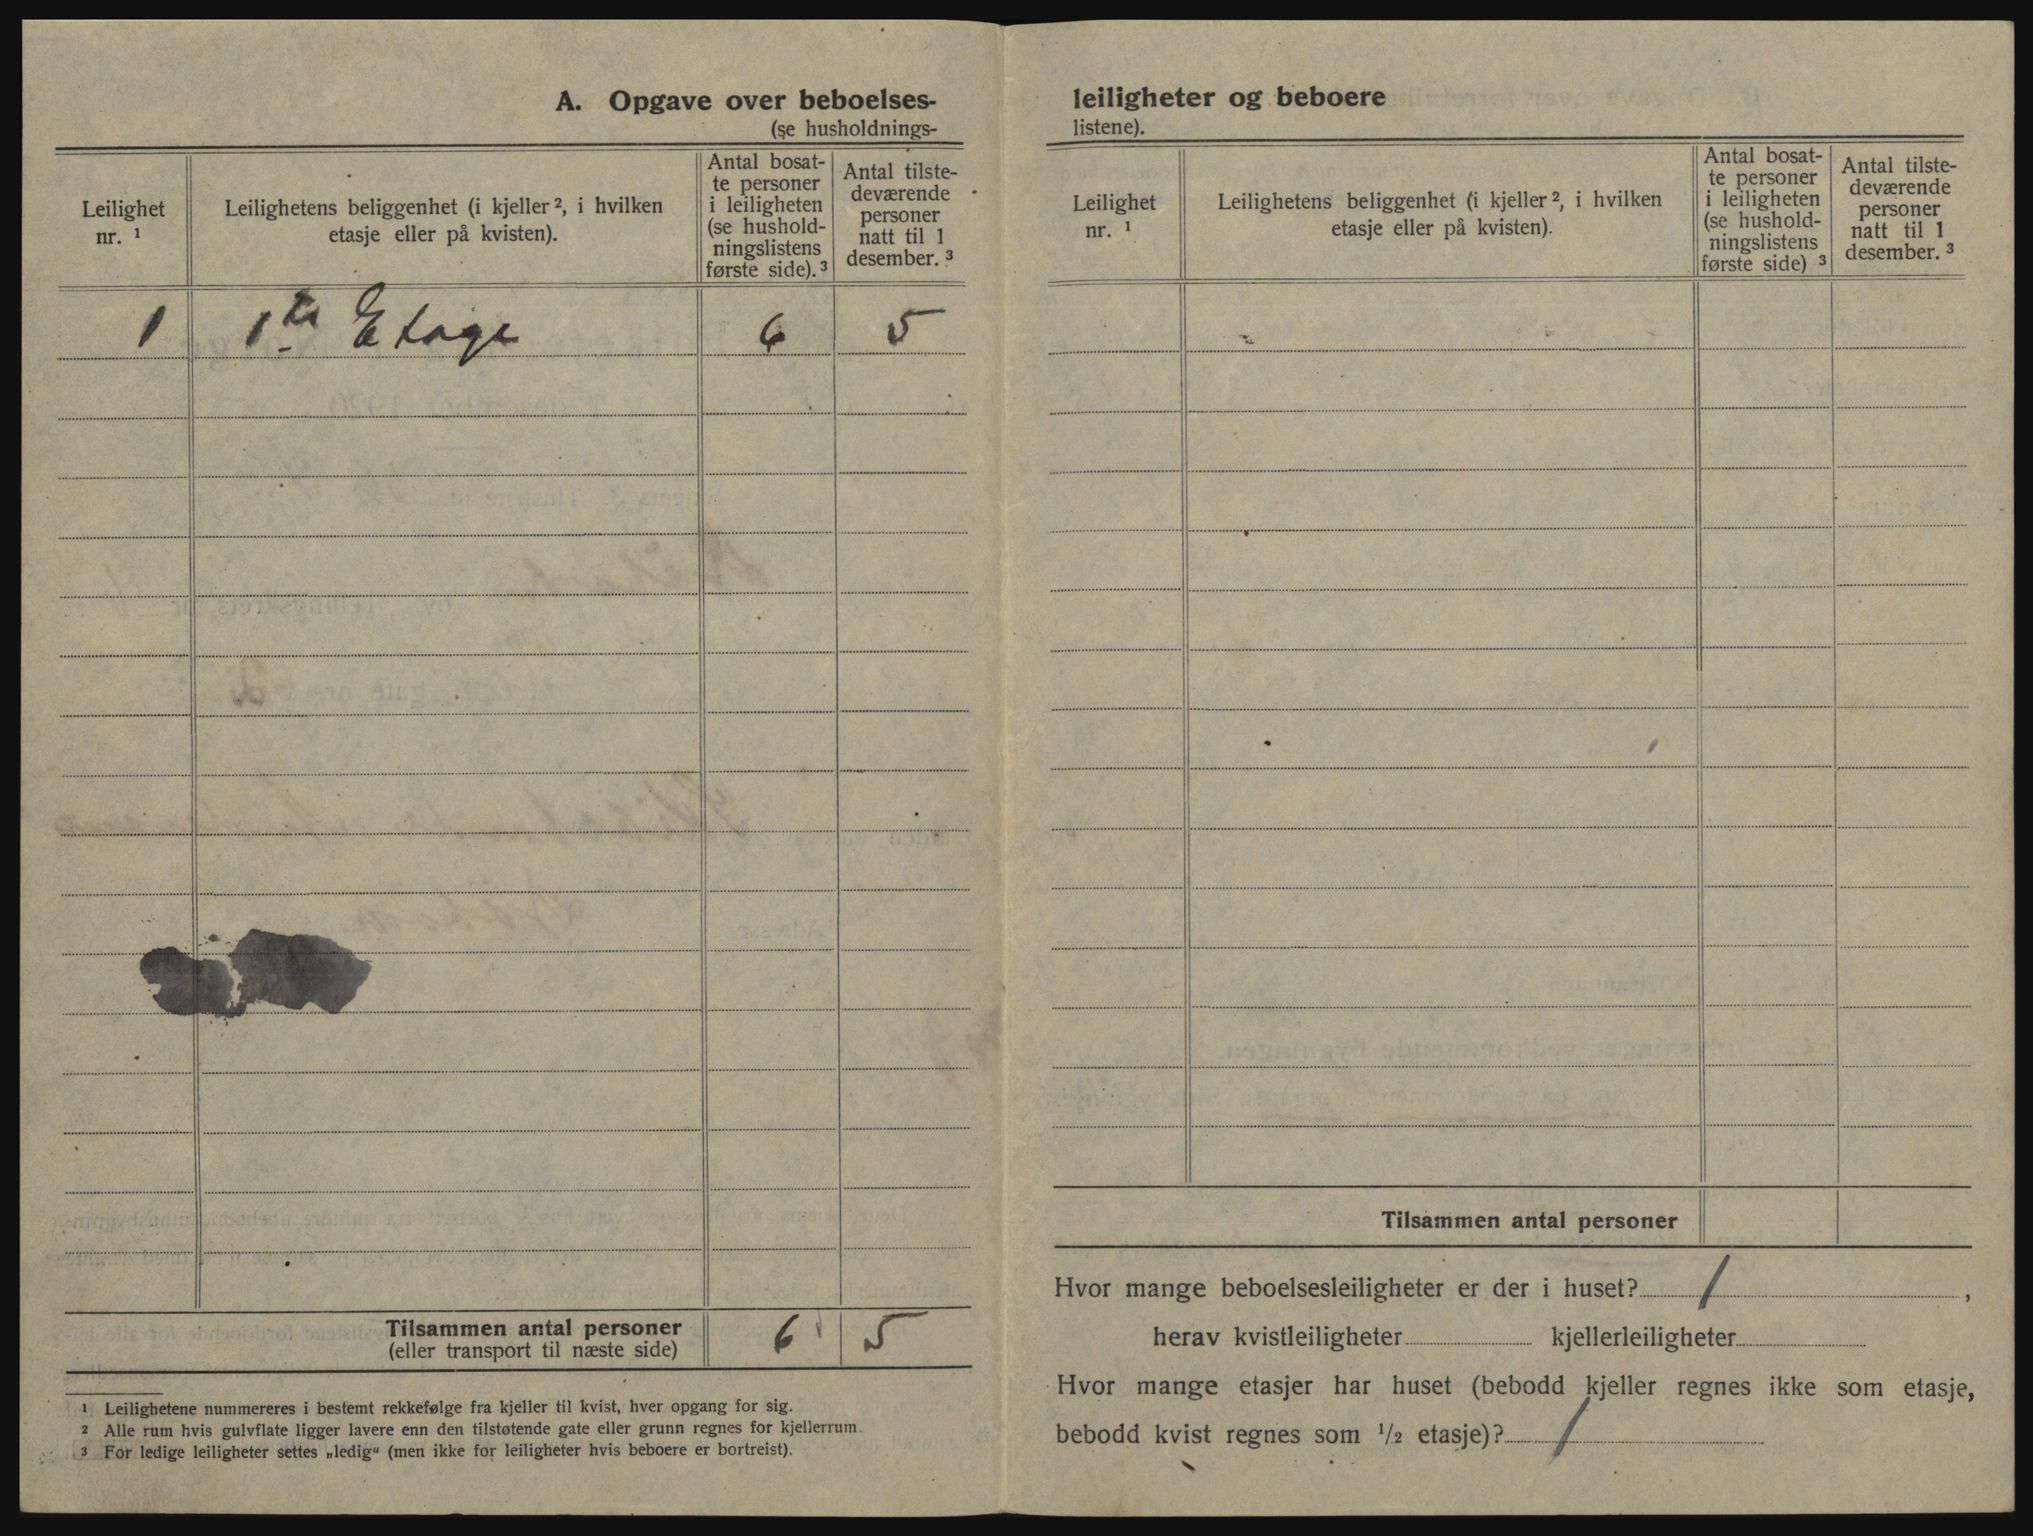 A. Opgave over beboelses-
(se husholdnings-
Leilighet
nr. ¹
Leilighetens beliggenhet (i kjeller ², i hvilken
etasje eller på kvisten).
Antal bosat-
te personer
i leiligheten
(se hushold-
ningslistens
første side). ³
Antal tilste-
deværende
personer
natt til 1
desember. ³
1 1ste Etage 6 5
Tilsammen antal personer 6 5
(eller transport til næste side)
¹ Leilighetene nummereres i bestemt rekkefølge fra kjeller til kvist, hver opgang for sig.
² Alle rum hvis gulvflate ligger lavere enn den tilstøtende gate eller grunn regnes for kjellerrum.
³ For ledige leiligheter settes „ledig“ (men ikke for leiligheter hvis beboere er bortreist).
leiligheter og beboere
listene).
Leilighet
nr. ¹
Leilighetens beliggenhet (i kjeller ², i hvilken
etasje eller på kvisten).
Antal bosat-
te personer
i leiligheten
(se hushold-
ningslistens
første side) ³
Antal tilste-
deværende
personer
natt til 1
desember. ³
Tilsammen antal personer
Hvor mange beboelsesleiligheter er der i huset? 1 ,
herav kvistleiligheter kjellerleiligheter
Hvor mange etasjer har huset (bebodd kjeller regnes ikke som etasje,
bebodd kvist regnes som ½ etasje)? 1